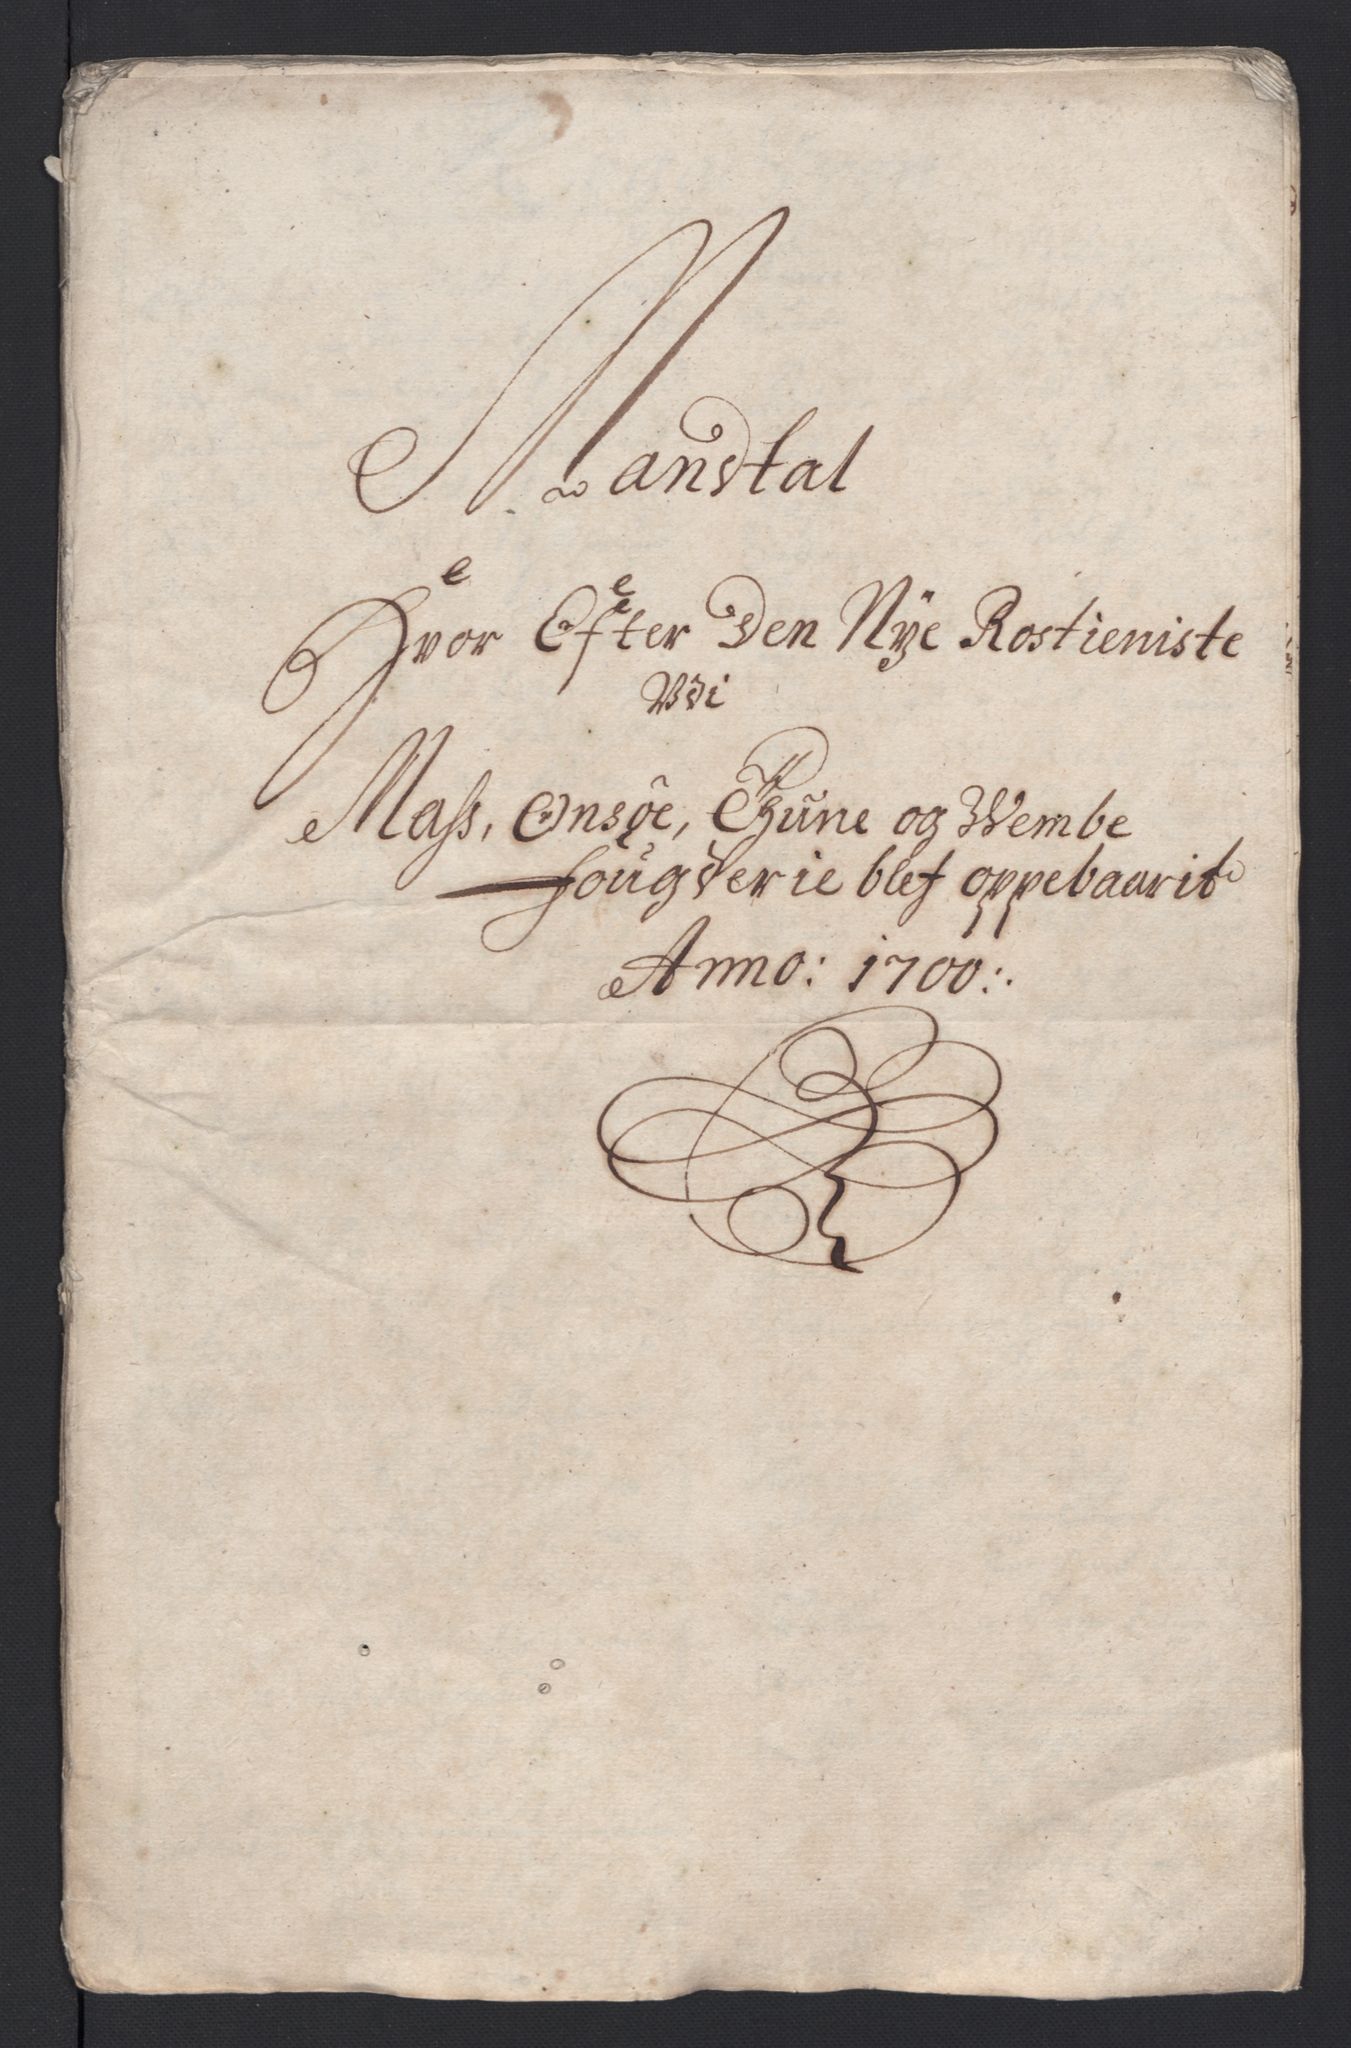 Mandtal
Hvor Efter Den Nÿe Rostieniste
Vdi
Mass, Onsøe, Thune og Wembe
fougderie blef oppebaarit
Anno: 1700:.